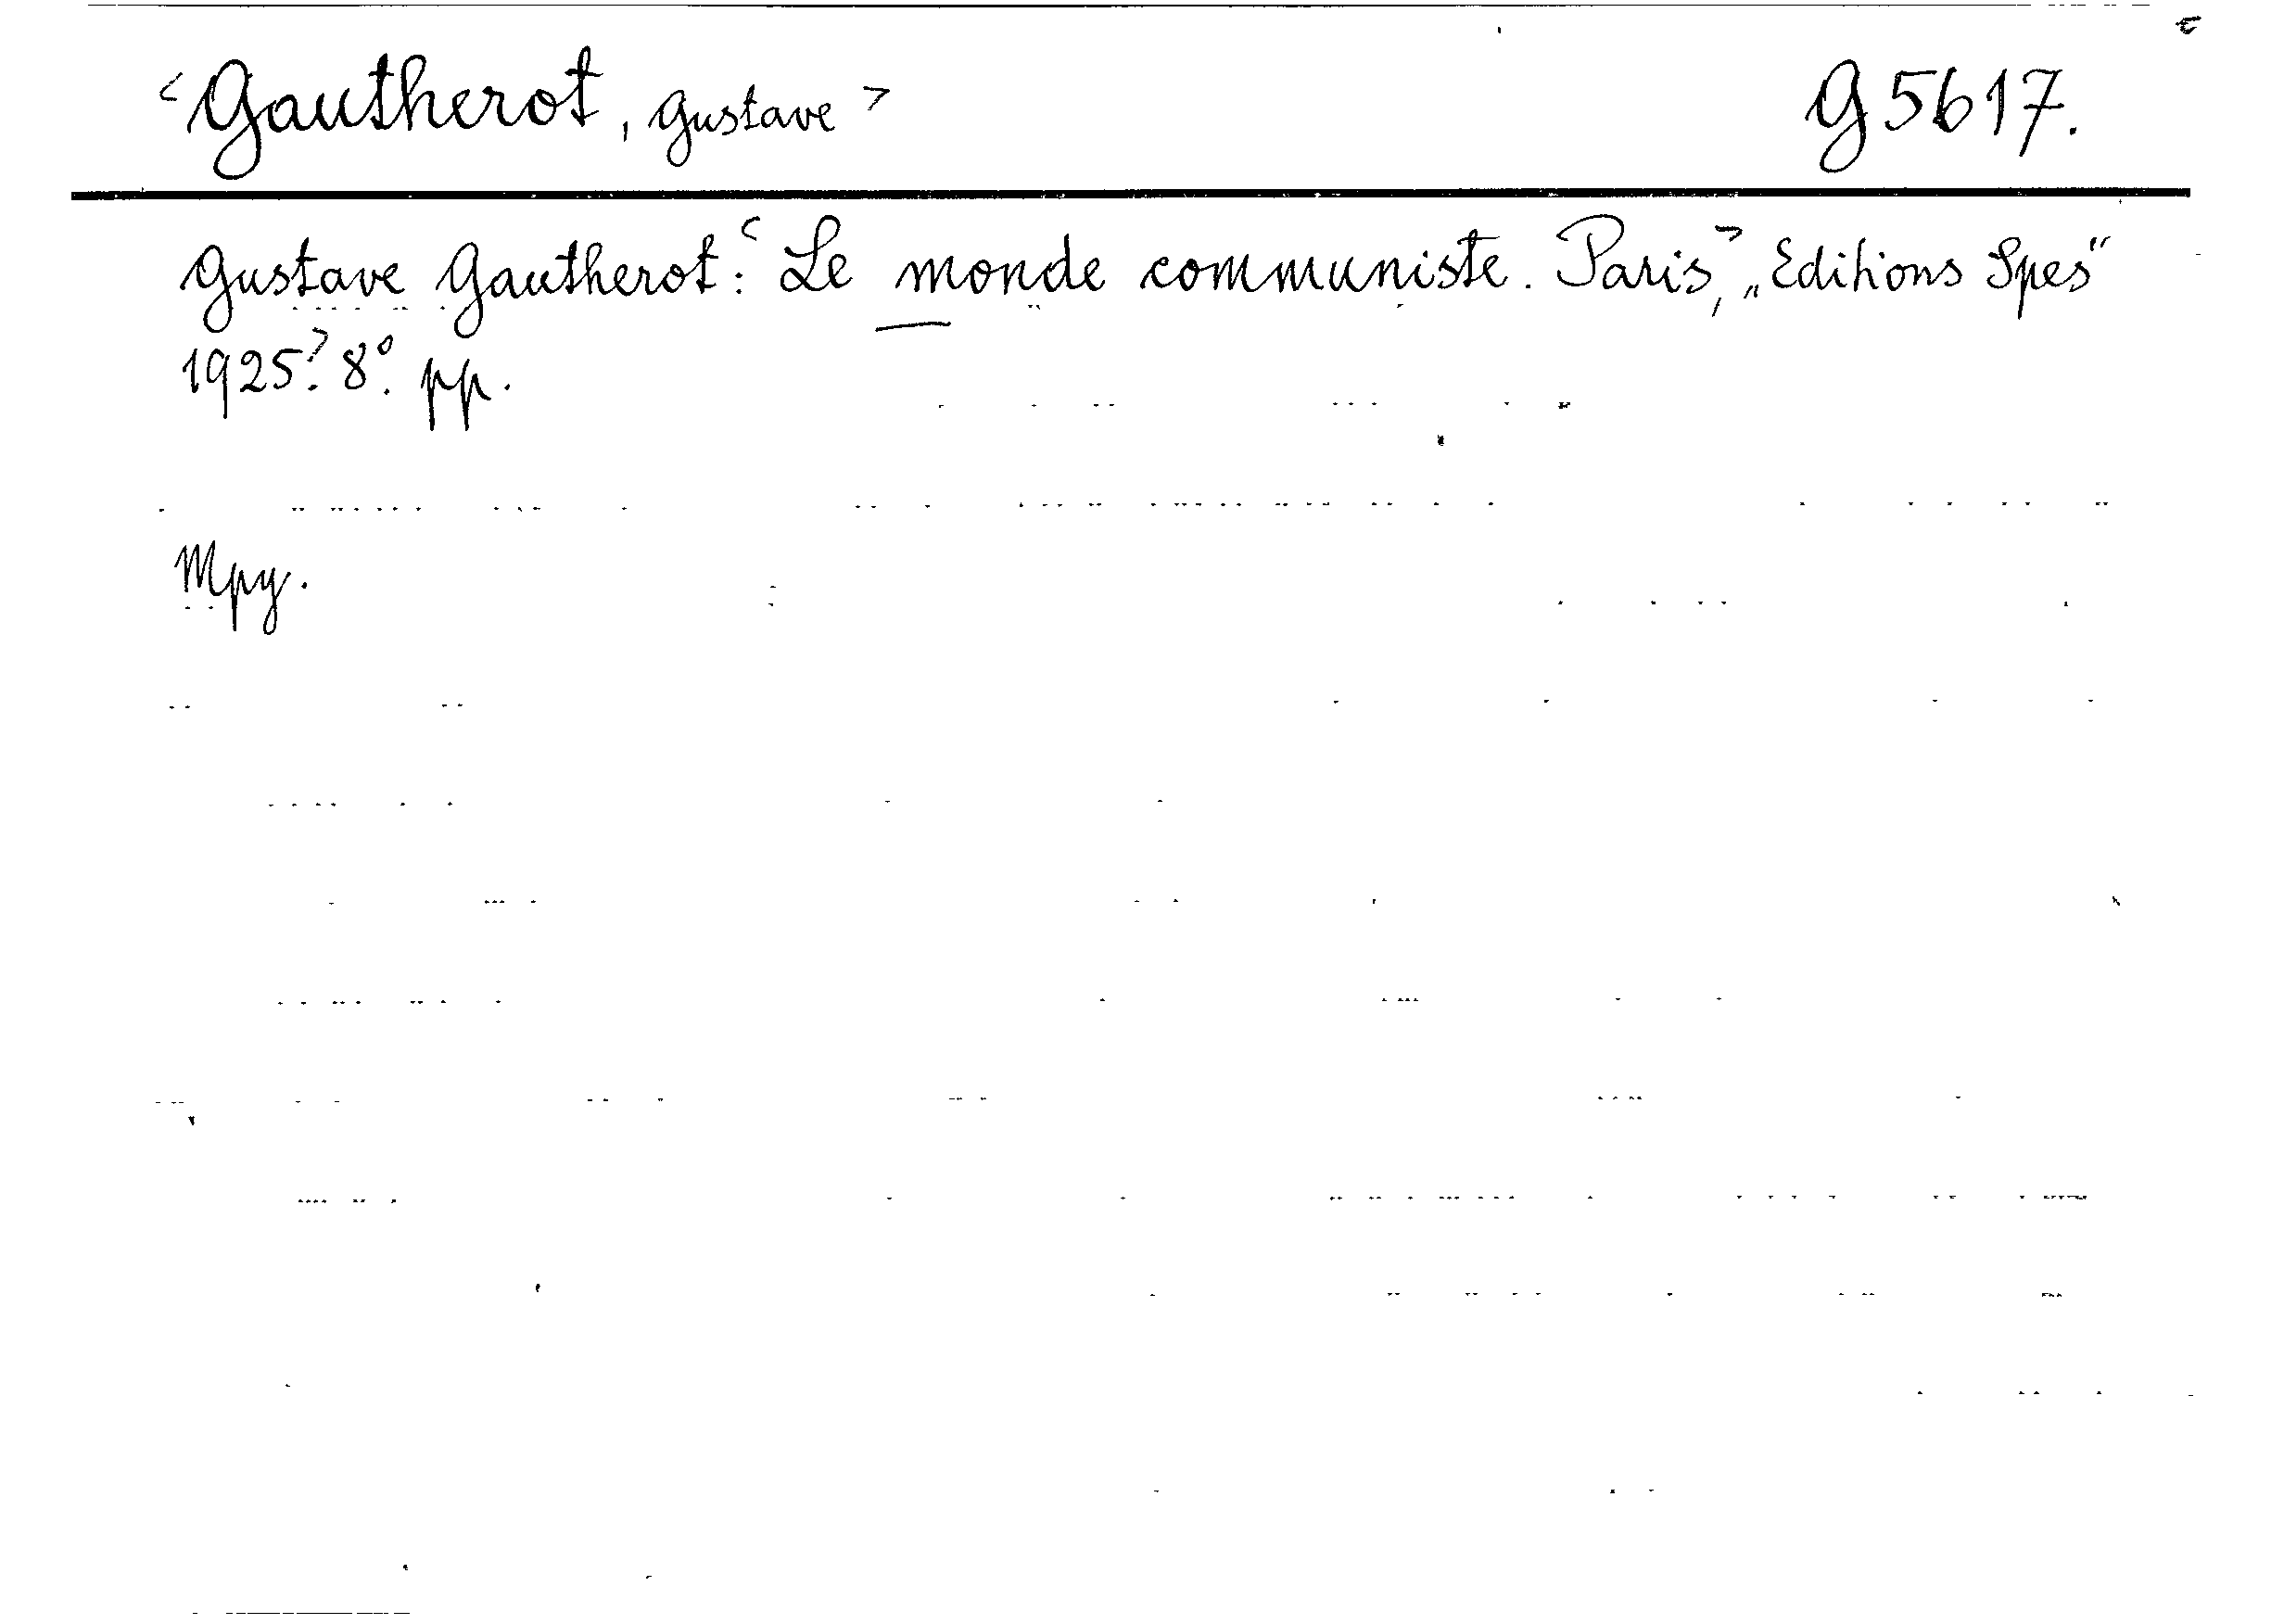 <Gautherot, Gustave> G 5617.
Gustave Gautherot: <Le monde communiste. Paris,> „Editions Spes"
1925.> 8°. pp.
Mpy.